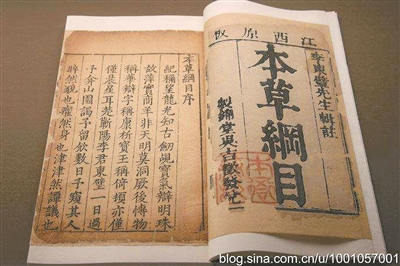 江西原板
李東璧先生輯註
本草綱目
製錦堂
本草綱目序
紀稱望龍光知古劍覘寶氣辯明珠
故萍實商羊非天明莫洞厥後博物
稱華辯字稱康析寶玉稱倚頓亦僅
僅晨星耳楚蘄陽李君東璧一日過
予弇山園謁予留飲數日予窺其人
睟然貌也癯然身也津津然譚議也
blog.sina.com.cn/u/1001057001